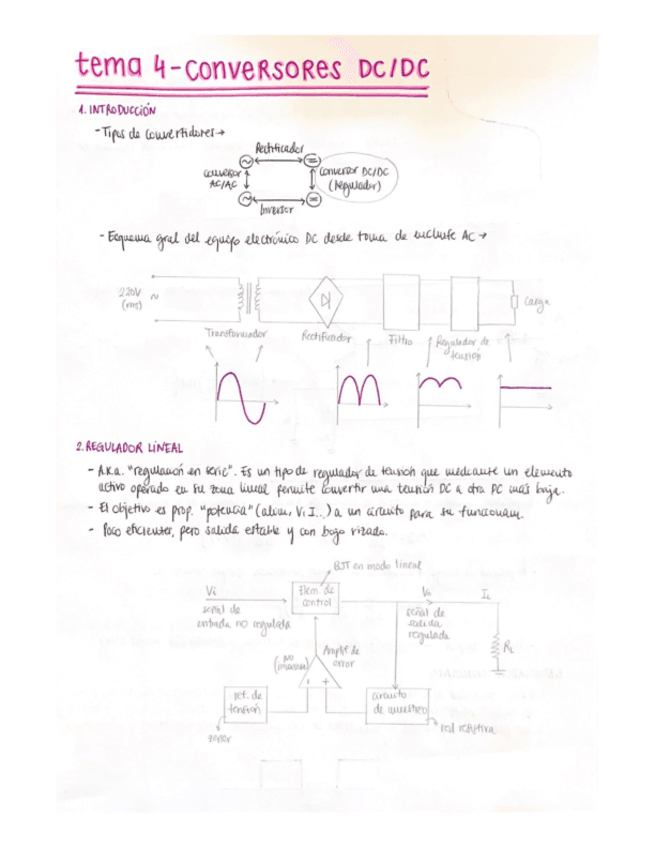 tema 4-CONVERSORES DC/DC
1. INTRODUCCIÓN
- Tipos de convertidores →
Rectificador
Conversor AC/AC
Conversor DC/DC (regulador)
Inversor
- Esquema gral del equipo electrónico DC desde toma de enchufe AC →
220V (rms) ~
Transformador
Rectificador
Filtro
Regulador de tensión
Carga
2. REGULADOR LINEAL
- A.k.a. "regulación en serie". Es un tipo de regulador de tensión que mediante un elemento
activo operado en su zona lineal permite convertir una tensión DC a otra DC más baja.
- El objetivo es prop. "potencia" (alim, V, I...) a un circuito para su funcionam.
- Poco eficientes, pero salida estable y con bajo rizado.
BJT en modo lineal
Vi
señal de
entrada no regulada
Elem. de
control
Vo
señal de
salida
regulada
IL
RL
Amplif de
error
NO
(inversor)
- +
ref. de
tensión
zener
circuito
de muestreo
red resistiva